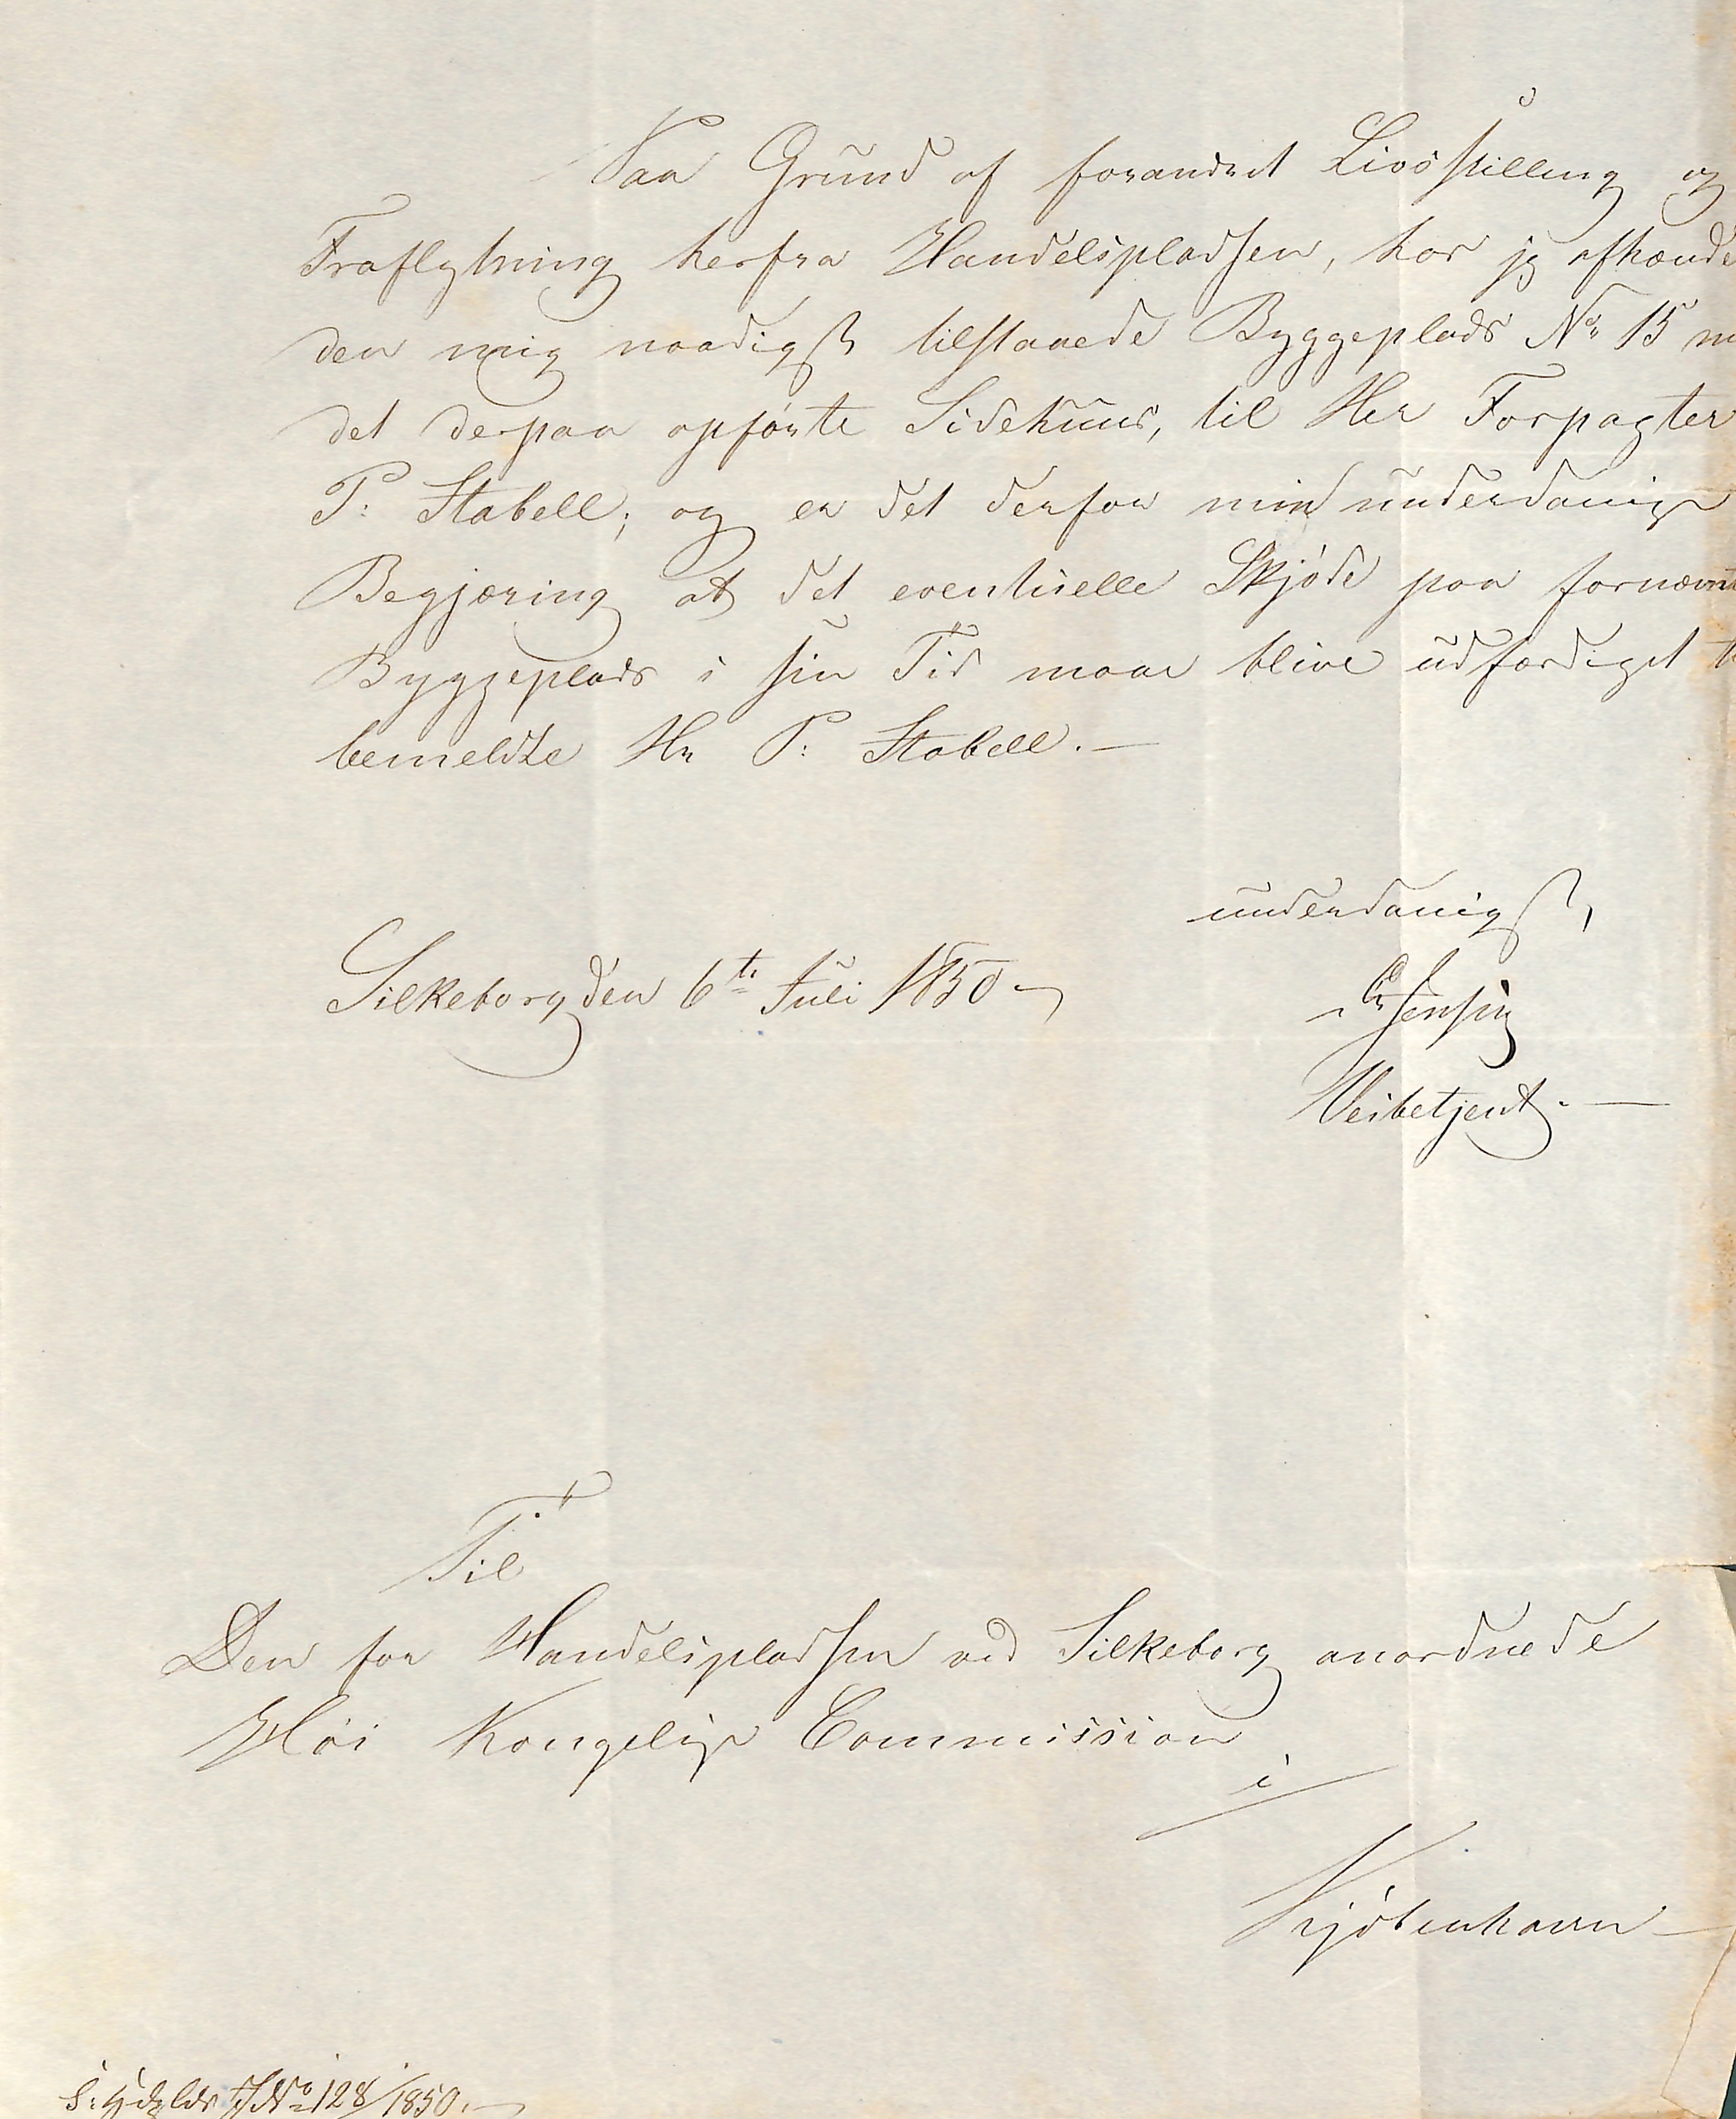 Paa Grund af forandret Livsstilling og
Fraflytning herfra Handelspladsen, har jeg afhænde
den mig naadigst tilstaaede Byggeplads No 15 m
det derpaa opførte Sidehuus, til Her Forpagter
P: Stabell; og er det derfor min underdanige
Begjæring at det eventuelle Skjøde paa fornævnte
Byggeplads i sin Tid maae blive udfærdiget t
bemeldte Hr P: Stabell. —
underdanigst,
Silkeborg den 6te Juli 1850
Jensen
Veibetjent. —
Til
Den for Handelspladsen ved Silkeborg anordnede
Høi Kongelige Commission
i
Kjøbenhavn
No 128/1850. —